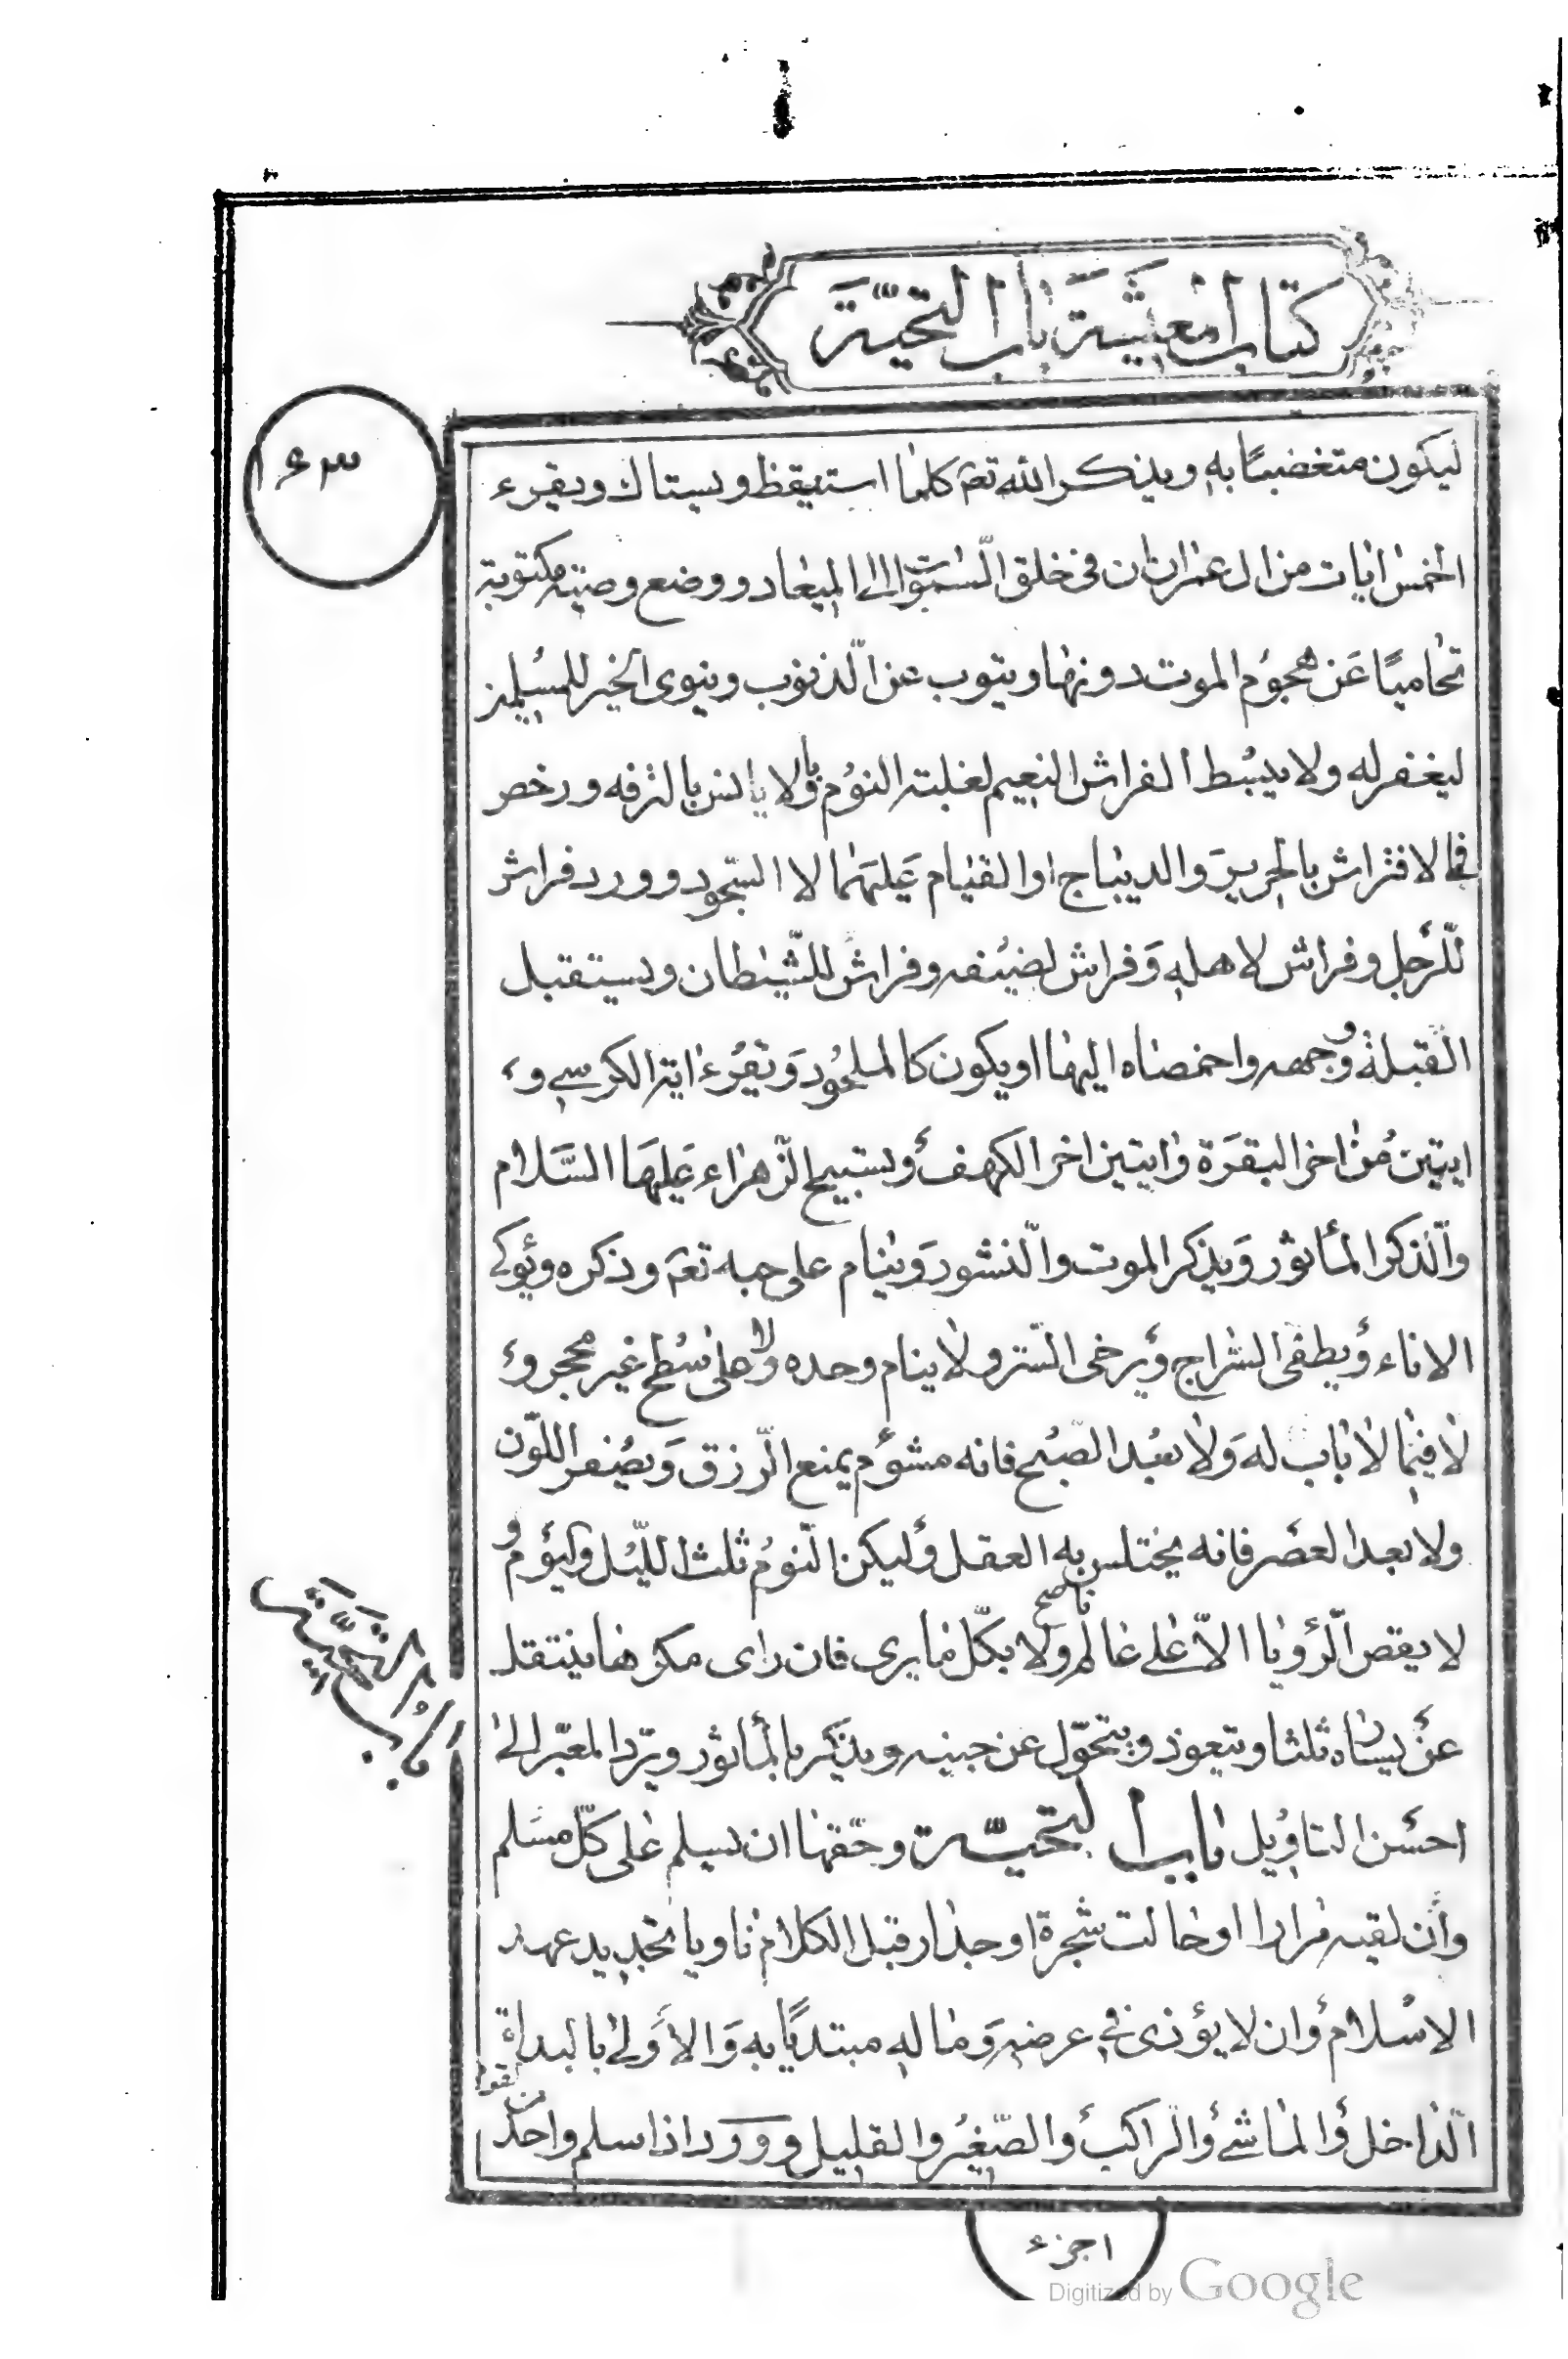 كتاب المعيشة باب التحية
ليكون متغضبًا به ويذكر الله تعم كلما استيقظ ويستاك ويقرء
الخمس ايات من ال عمران ان فى خلق السموات الى الميعاد ووضع وصيته مكتوبة
تحاميًا عن هجوم الموت دونها ويتوب عن الذنوب وينوى الخير للمسلمين
ليغفر له ولا يبسط الفراش النعيم لغلبة النوم ولا يانس بالترفه ورخص
فى الافتراش بالحرير والديباج او القيام عليهما لا السجود وورد فراش
للرجل وفراش لاهله وفراش لضيفه وفراش للشيطان ويستقبل
القبلة وجهه واخمصاه اليها او يكون كالملحود ويقرء اية الكرسى و
ايتين من اخر البقرة وايتين اخر الكهف وتسبيح الزهراء عليها السلام
والذكر المأثور ويذكر الموت والنشور وينام على حبه تعم وذكره ويؤكى
الاناء ويطفى السراج ويرخى الستر ولا ينام وحده ولا على سطح غير محجر و
لا فيما لا باب له ولا بعد الصبح فانه مشؤم يمنع الرزق ويصفر اللون
ولا بعد العصر فانه يختلس به العقل وليكن النوم ثلث الليل واليوم و
لا يقص الرؤيا الا على عالم ناصح ولا بكل ما يرى فان راى مكروها فيتفل
عن يساره ثلثا ويتعوذ ويتحول عن جنبه ويذكر بالمأثور ويرد المعبر الى
احسن التاويل باب التحية وحقها ان يسلم على كل مسلم
وان لقيه مرارا او حالت شجرة او جدار قبل الكلام ناويا تجديد عهد
الاسلام وان لا يؤذى فى عرضه وماله مبتديًا به والاولى بالبداة
الداخل والماشى والراكب والصغير والقليل وورد اذا سلم واحد من القوم
باب التحية
١ جزء
Digitized by Google